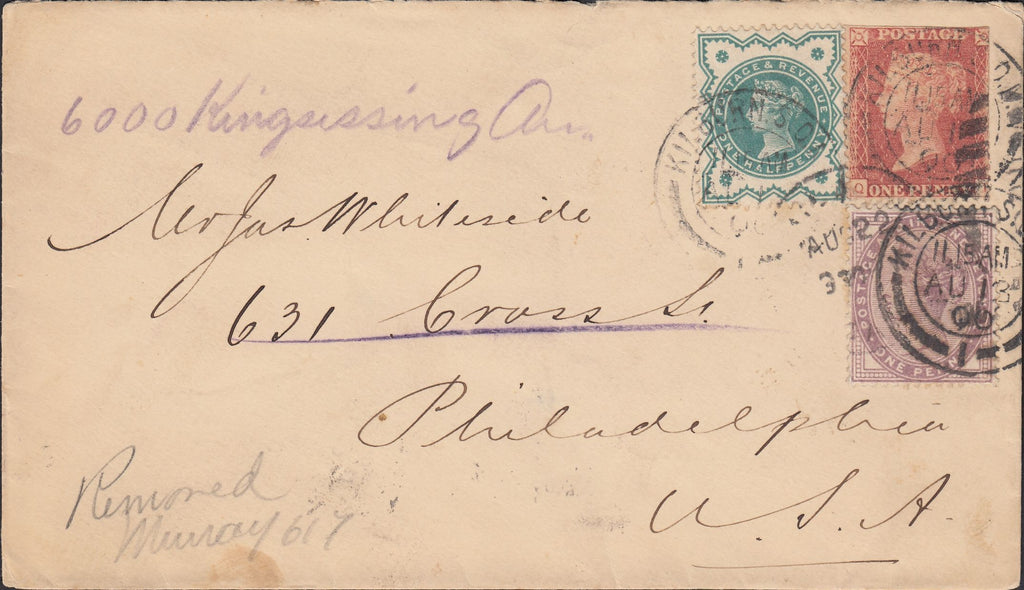 6000 Kingsessing Av.
Mr Jas Whiteside
631 Cross St.
Philadelphia
U.S.A.
Removed
Murray 617
POSTAGE & REVENUE
ONE HALFPENNY
POSTAGE
ONE PENNY
ONE PENNY
KILBURN S.O
AUG 22
KILBURN
11.15AM
AU 1
00
1